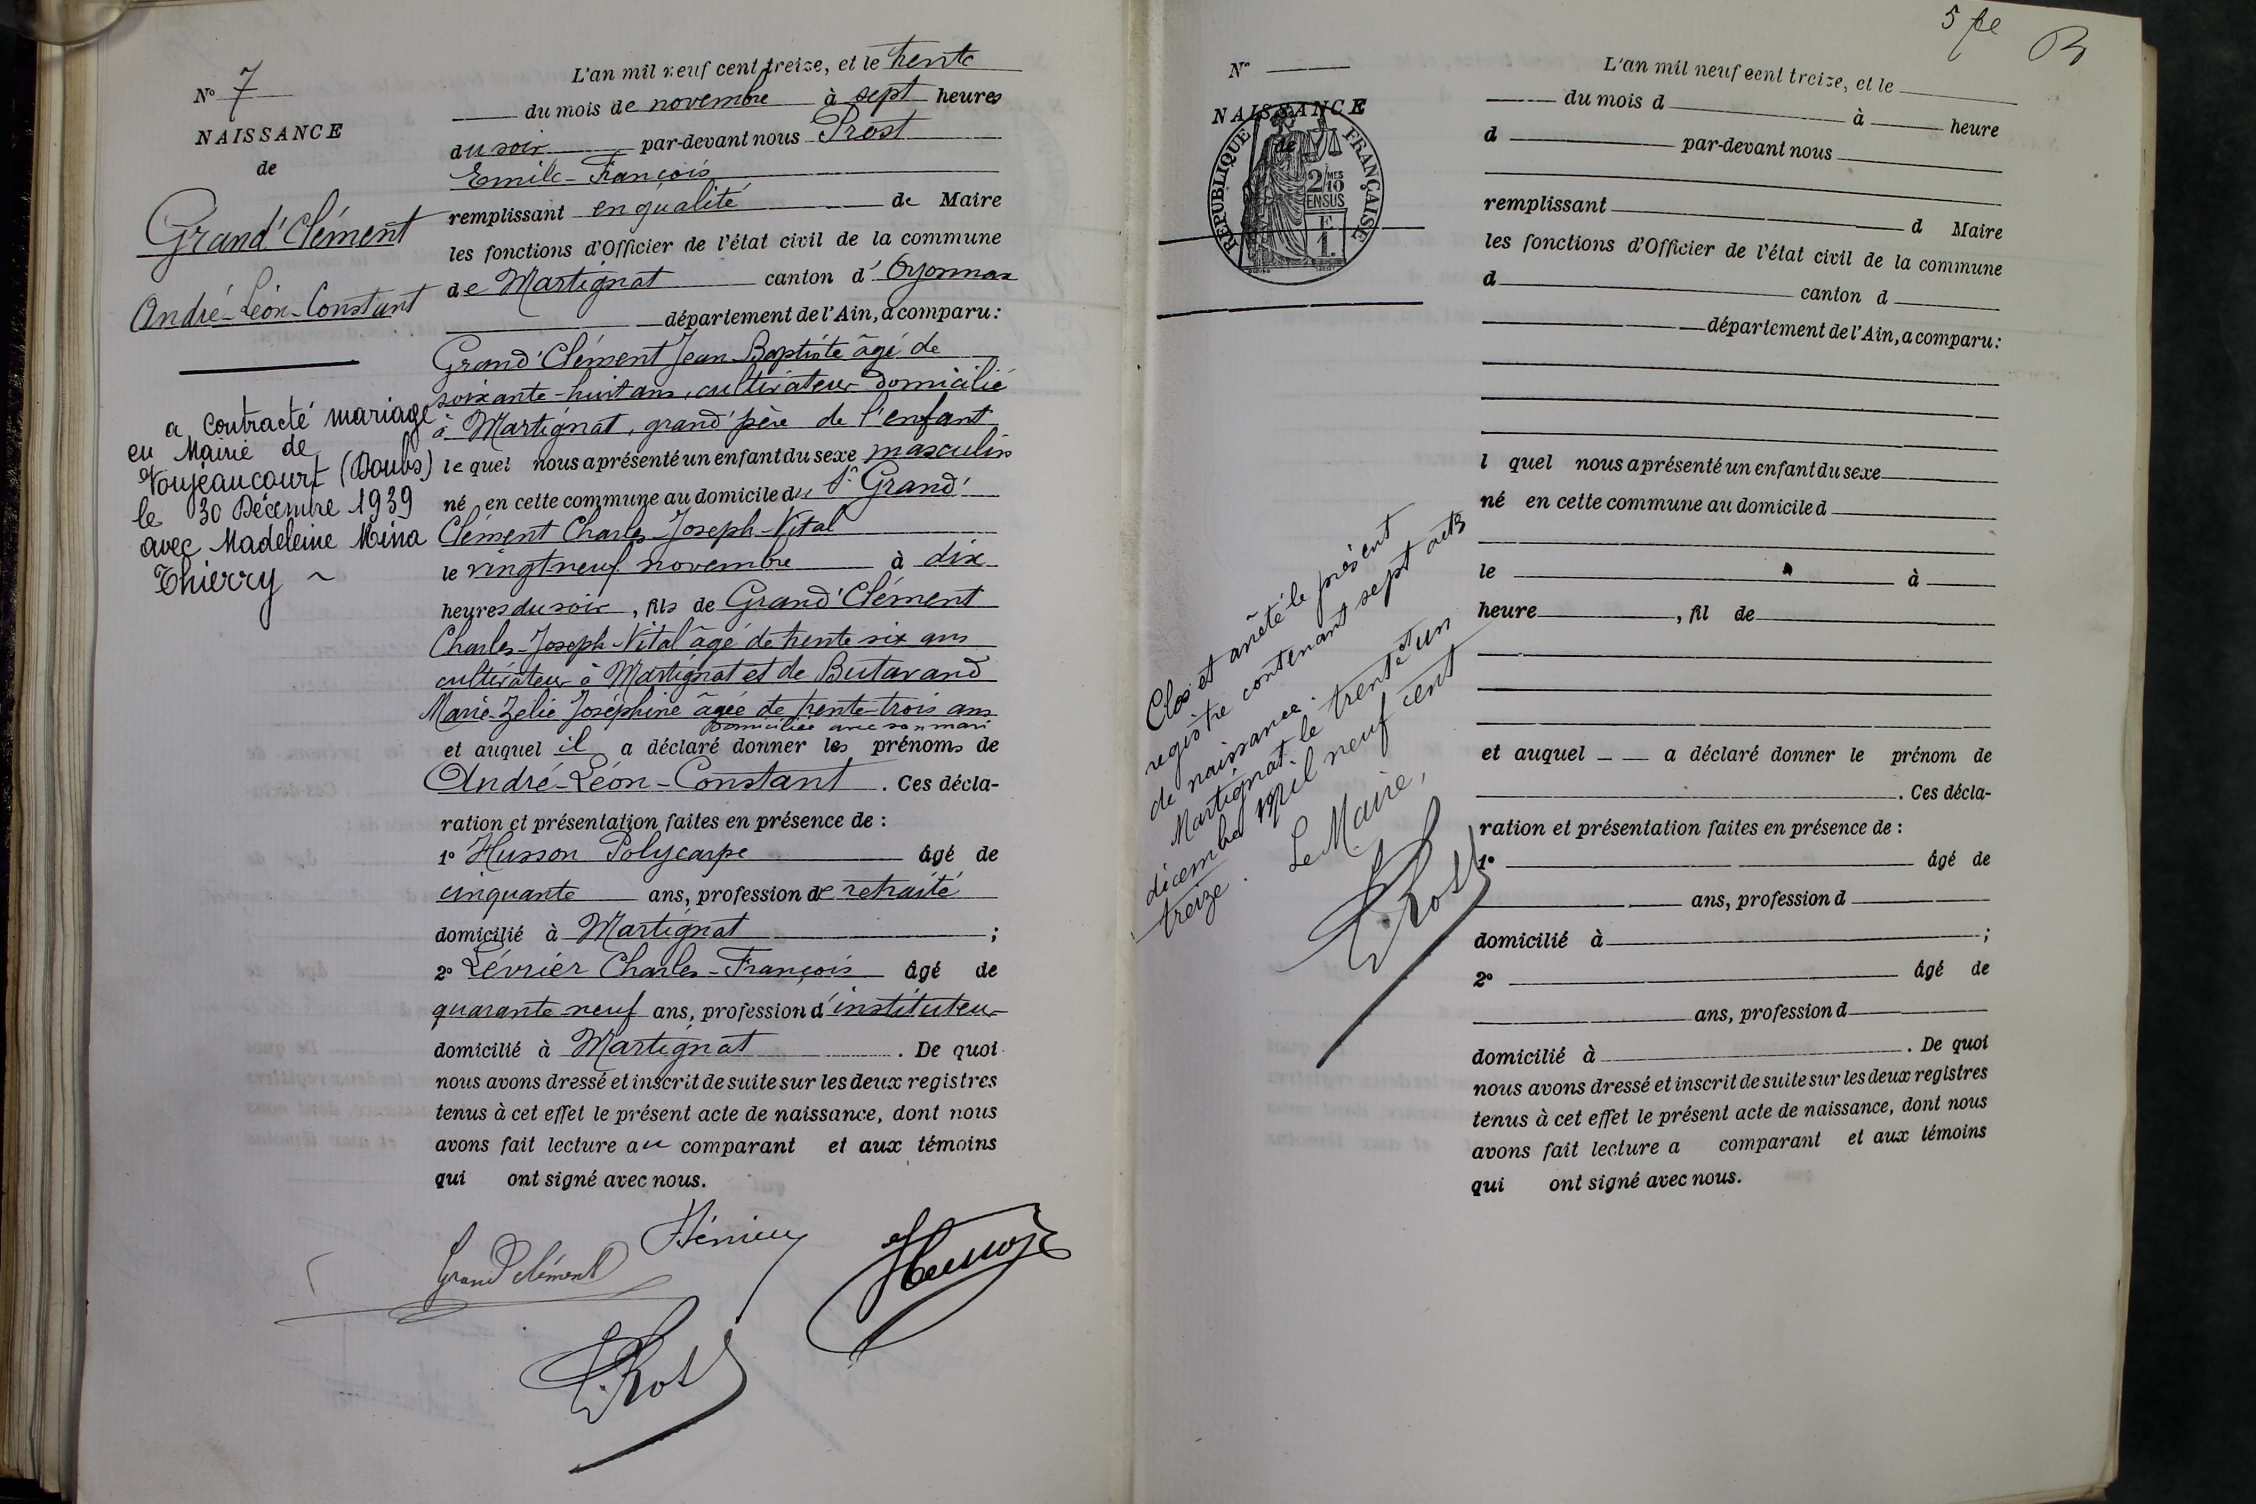 N° 7
NAISSANCE
de
Grand'Clément
André-Léon-Constant
a contracté mariage
en Mairie de
Voujeaucourt (Doubs)
le 30 Décembre 1939
avec Madeleine Mina
Thierry ~
L'an mil neuf cent treize, et le trente
du mois de novembre à sept heures
du soir par-devant nous Prost
Emile-François
remplissant en qualité de Maire
les fonctions d'Officier de l'état civil de la commune
de Martignat canton d'Oyonnax
département de l'Ain, a comparu :
Grand'Clément Jean-Baptiste âgé de
soixante-huit ans, cultivateur domicilié
à Martignat, grand'père de l'enfant
lequel nous a présenté un enfant du sexe masculin
né en cette commune au domicile du Sr Grand'
Clément Charles-Joseph-Vital
le vingt-neuf novembre à dix
heures du soir, fils de Grand'Clément
Charles-Joseph-Vital âgé de trente six ans
cultivateur à Martignat et de Butavand
Marie-Zélie Joséphine âgée de trente-trois ans
domiciliée avec son mari
et auquel il a déclaré donner les prénoms de
André-Léon-Constant. Ces décla-
ration et présentation faites en présence de :
1° Husson Polycarpe âgé de
cinquante ans, profession de retraité
domicilié à Martignat ;
2° Lévrier Charles-François âgé de
quarante neuf ans, profession d'instituteur
domicilié à Martignat. De quoi
nous avons dressé et inscrit de suite sur les deux registres
tenus à cet effet le présent acte de naissance, dont nous
avons fait lecture au comparant et aux témoins
qui ont signé avec nous.
Grand clément
E. Prost
5 fe
N°
NAISSANCE
de
RÉPUBLIQUE FRANÇAISE
2/10 MES
EN SUS
F
1.
Clos et arrêté le présent
registre contenant sept actes
de naissance.
Martignat le trente et un
décembre mil neuf cent
treize. Le Maire,
E. Prost
L'an mil neuf cent treize, et le
du mois d à heure
d par-devant nous
remplissant d Maire
les fonctions d'Officier de l'état civil de la commune
d canton d
département de l'Ain, a comparu :
l quel nous a présenté un enfant du sexe
né en cette commune au domicile d
le à
heure , fil de
et auquel a déclaré donner le prénom de
. Ces décla-
ration et présentation faites en présence de :
1° âgé de
ans, profession d
domicilié à ;
2° âgé de
ans, profession d
domicilié à . De quoi
nous avons dressé et inscrit de suite sur les deux registres
tenus à cet effet le présent acte de naissance, dont nous
avons fait lecture a comparant et aux témoins
qui ont signé avec nous.